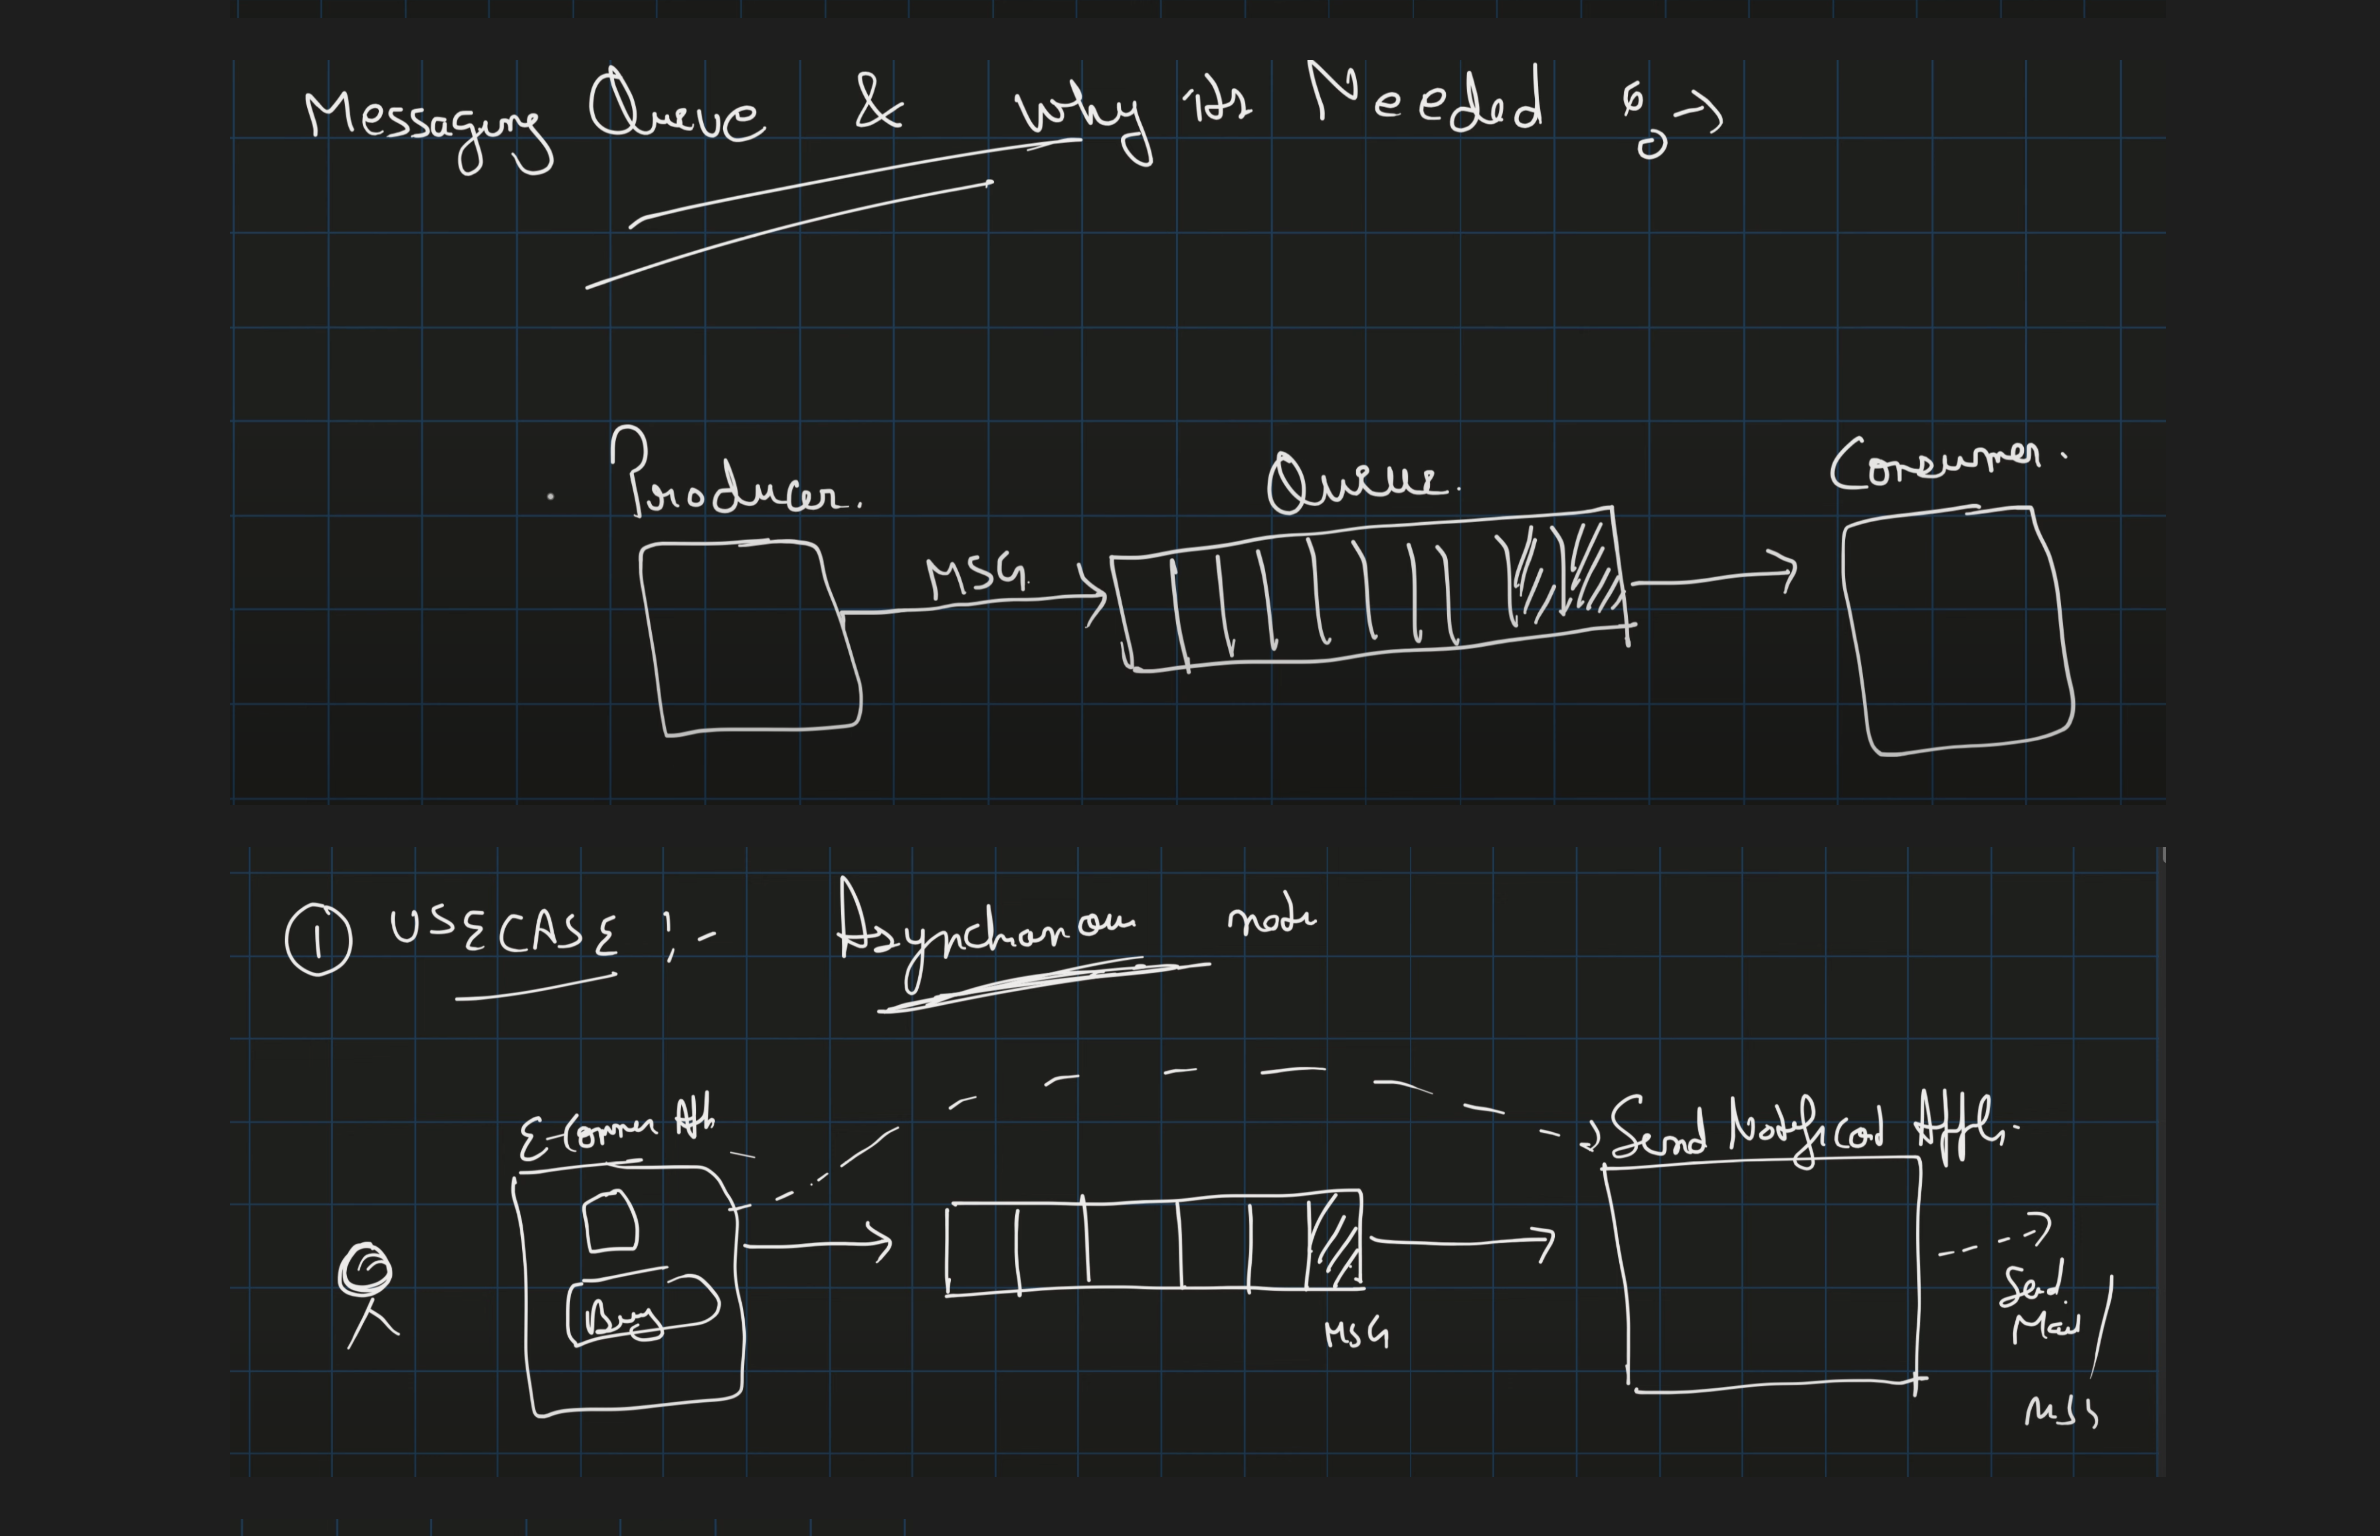 Messaging Queue & Why its Needed ? ->
Producer.
Queue.
Consumer.
MSG.
① USECASE :-
Asynchronous
E-Comm App
Send Notificat App.
Buy
MSG
Send
Mail /
MSG